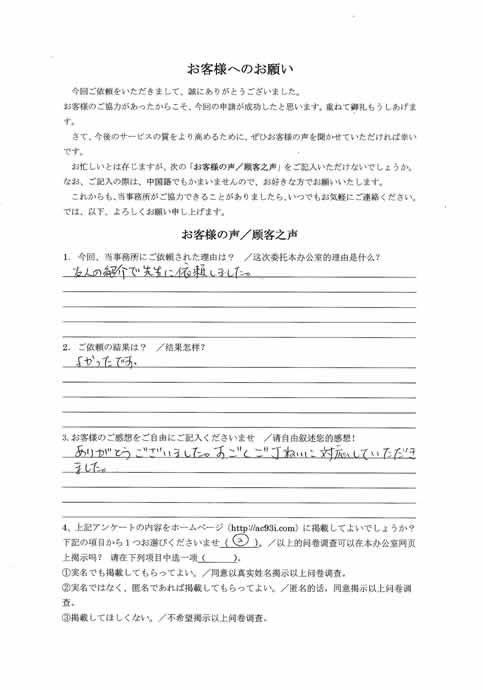 お客様へのお願い
今回ご依頼をいただきまして、誠にありがとうございました。
お客様のご協力があったからこそ、今回の申請が成功したと思います。重ねて御礼もうしあげま
す。
さて、今後のサービスの質をより高めるために、ぜひお客様の声を聞かせていただければ幸い
です。
お忙しいとは存じますが、次の「お客様の声／顧客之声」をご記入いただけないでしょうか。
なお、ご記入の際は、中国語でもかまいませんので、お好きな方でお願いいたします。
これからも、当事務所がご協力できることがありましたら、いつでもお気軽にご連絡ください。
では、以下、よろしくお願い申し上げます。
お客様の声／顧客之声
1．今回、当事務所にご依頼された理由は？　／这次委托本办公室的理由是什么？
友人の紹介で先生に依頼しました。
2．ご依頼の結果は？　／结果怎样？
よかったです。
3.お客様のご感想をご自由にご記入くださいませ　／请自由叙述您的感想！
ありがとうございました。すごくご丁ねいに対応していただき
ました。
4、上記アンケートの内容をホームページ（http://ac93i.com）に掲載してよいでしょうか？
下記の項目から１つお選びくださいませ（ ② ）。／以上的问卷调查可以在本办公室网页
上揭示吗？ 请在下列项目中选一项（　　）。
①実名でも掲載してもらってよい。／同意以真实姓名揭示以上问卷调查。
②実名ではなく、匿名であれば掲載してもらってよい。／匿名的话，同意揭示以上问卷调
查。
③掲載してほしくない。／不希望揭示以上问卷调查。